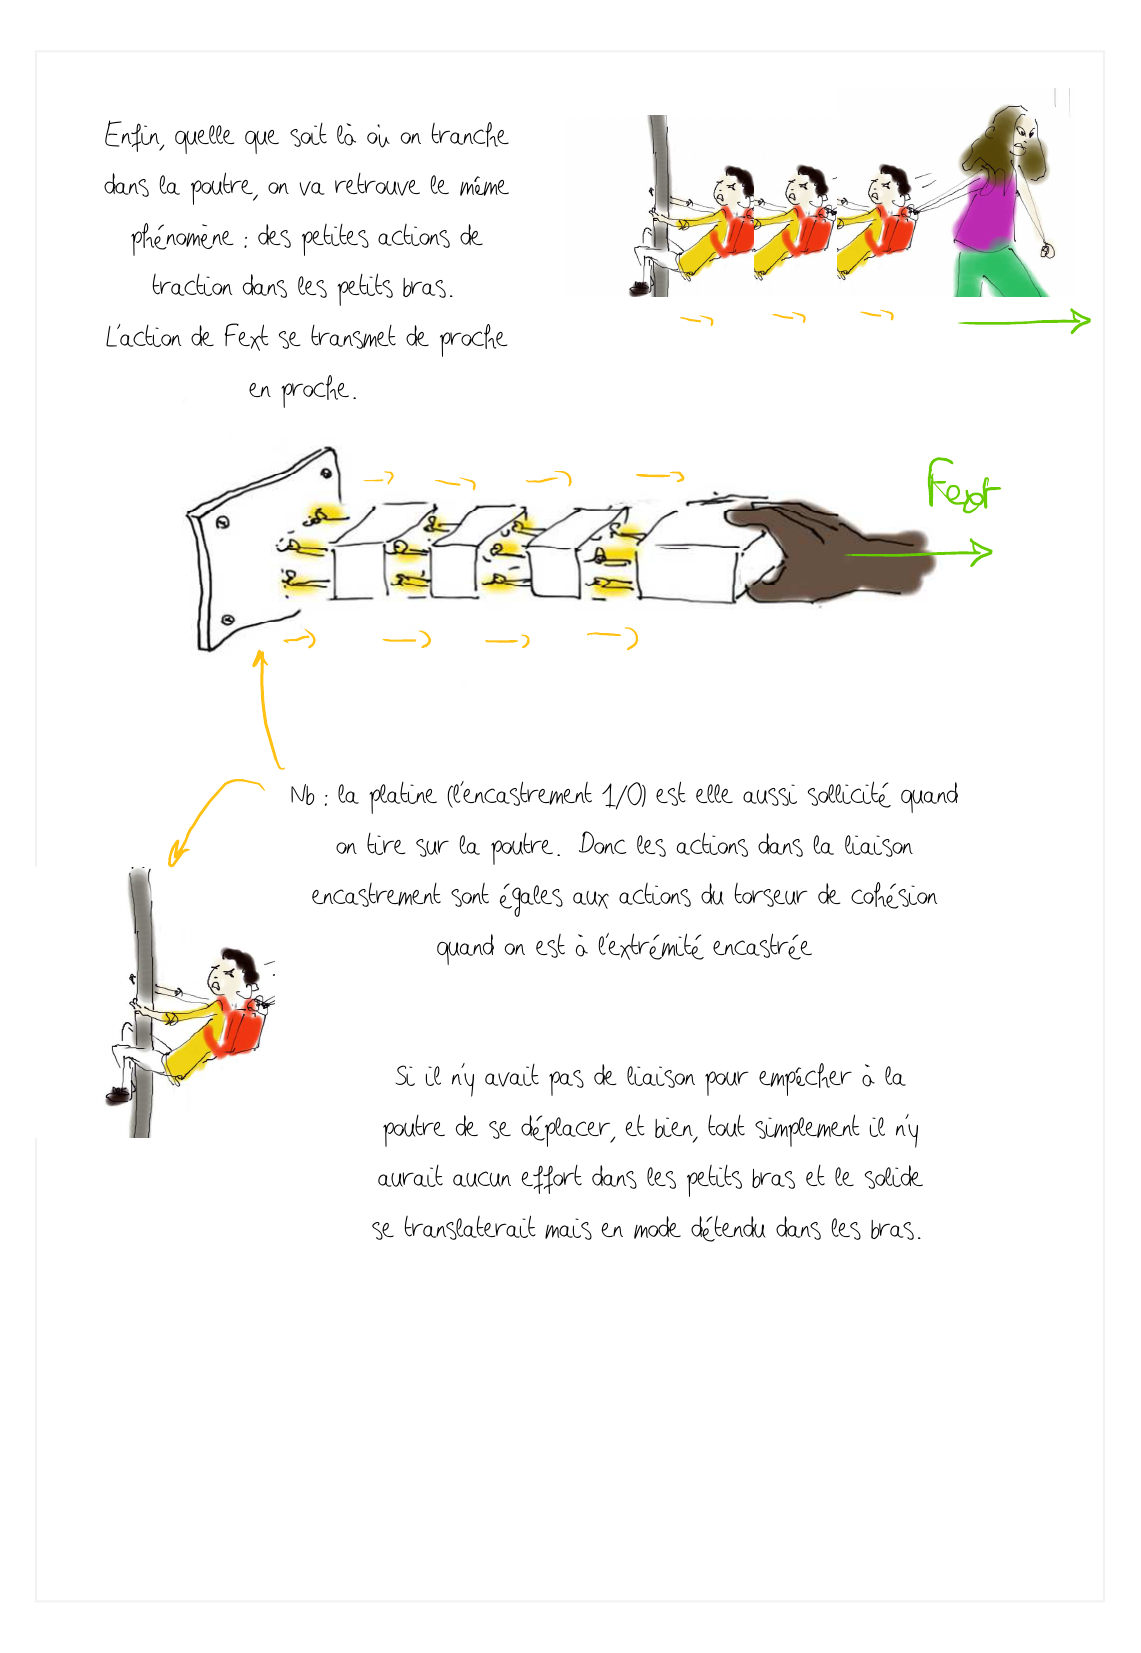 Enfin, quelle que soit là où on tranche
dans la poutre, on va retrouve le même
phénomène : des petites actions de
traction dans les petits bras.
L'action de Fext se transmet de proche
en proche.
Fext
Nb : la platine (l'encastrement 1/0) est elle aussi sollicité quand
on tire sur la poutre. Donc les actions dans la liaison
encastrement sont égales aux actions du torseur de cohésion
quand on est à l'extrémité encastrée
Si il n'y avait pas de liaison pour empêcher à la
poutre de se déplacer, et bien, tout simplement il n'y
aurait aucun effort dans les petits bras et le solide
se translaterait mais en mode détendu dans les bras.